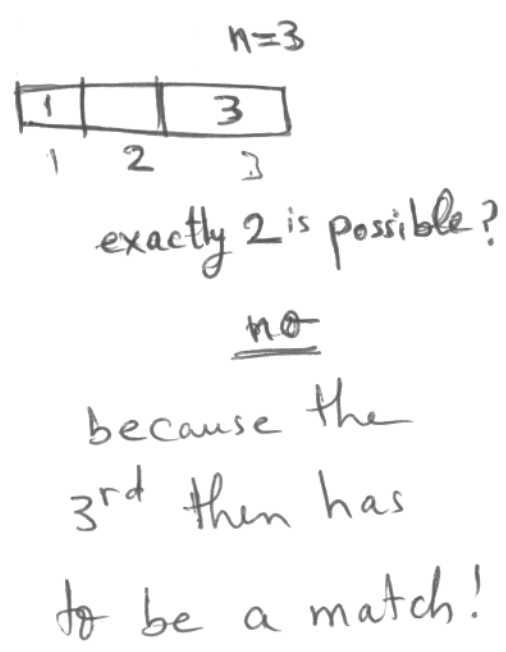 n=3
1 3
1 2 3
exactly 2 is possible?
no
because the
3rd then has
to be a match!